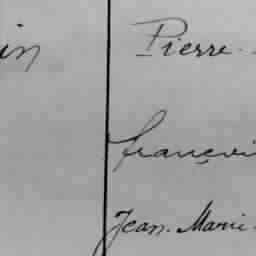 in Pierre.
françoi
Jean. Marie.